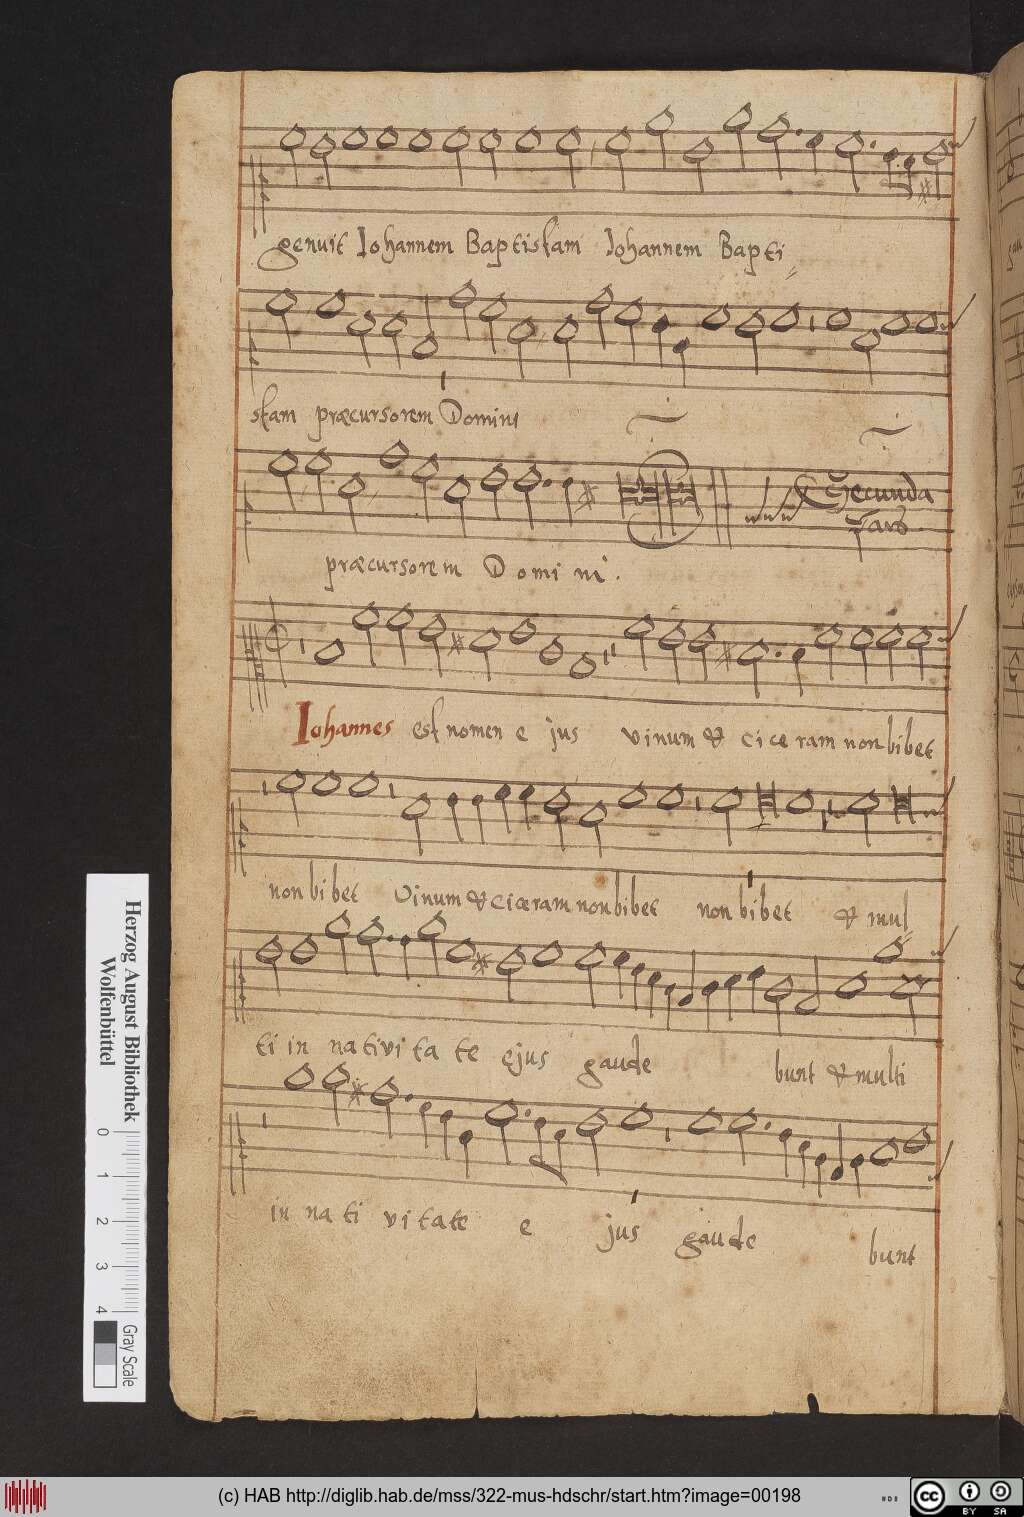 genuit Iohannem Baptistam Iohannem Bapti
stam præcursorem Domini
Secunda
Pars.
præcursorem Domini.
Iohannes est nomen ejus vinum & ciceram non bibet
non bibet Vinum & ciceram non bibet non bibet & mul
ti in nativitate ejus gaude bunt & multi
in nativitate ejus gaude bunt
Herzog August Bibliothek
Wolfenbüttel
0 1 2 3 4
Gray Scale
(c) HAB http://diglib.hab.de/mss/322-mus-hdschr/start.htm?image=00198
cc BY SA